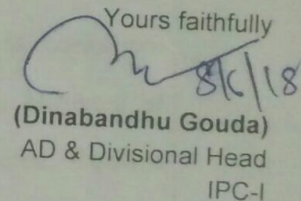 Yours faithfully
8/6/18
(Dinabandhu Gouda)
AD & Divisional Head
IPC-I